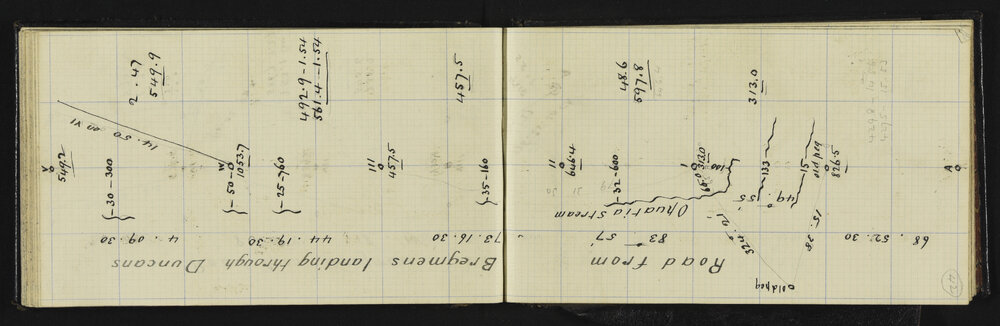 Road from Breymens landing through Duncans
Opuatia stream
old peg
68 . 52 . 30
83 - 57
73 . 16 . 30
44 . 19 . 30
4 . 09 . 30
A
826.5
old peg
15
133
49 . 55
100
313.0
-32-600
606.4
III
-35-160
457.5
III
-25-760
1053.7
-50-0
VI
-30-300
549.2
V
14.50 on VI
313.0
48.6
597.8
457.5
492.9-1.54
561.4-1.54
2 . 47
549.9